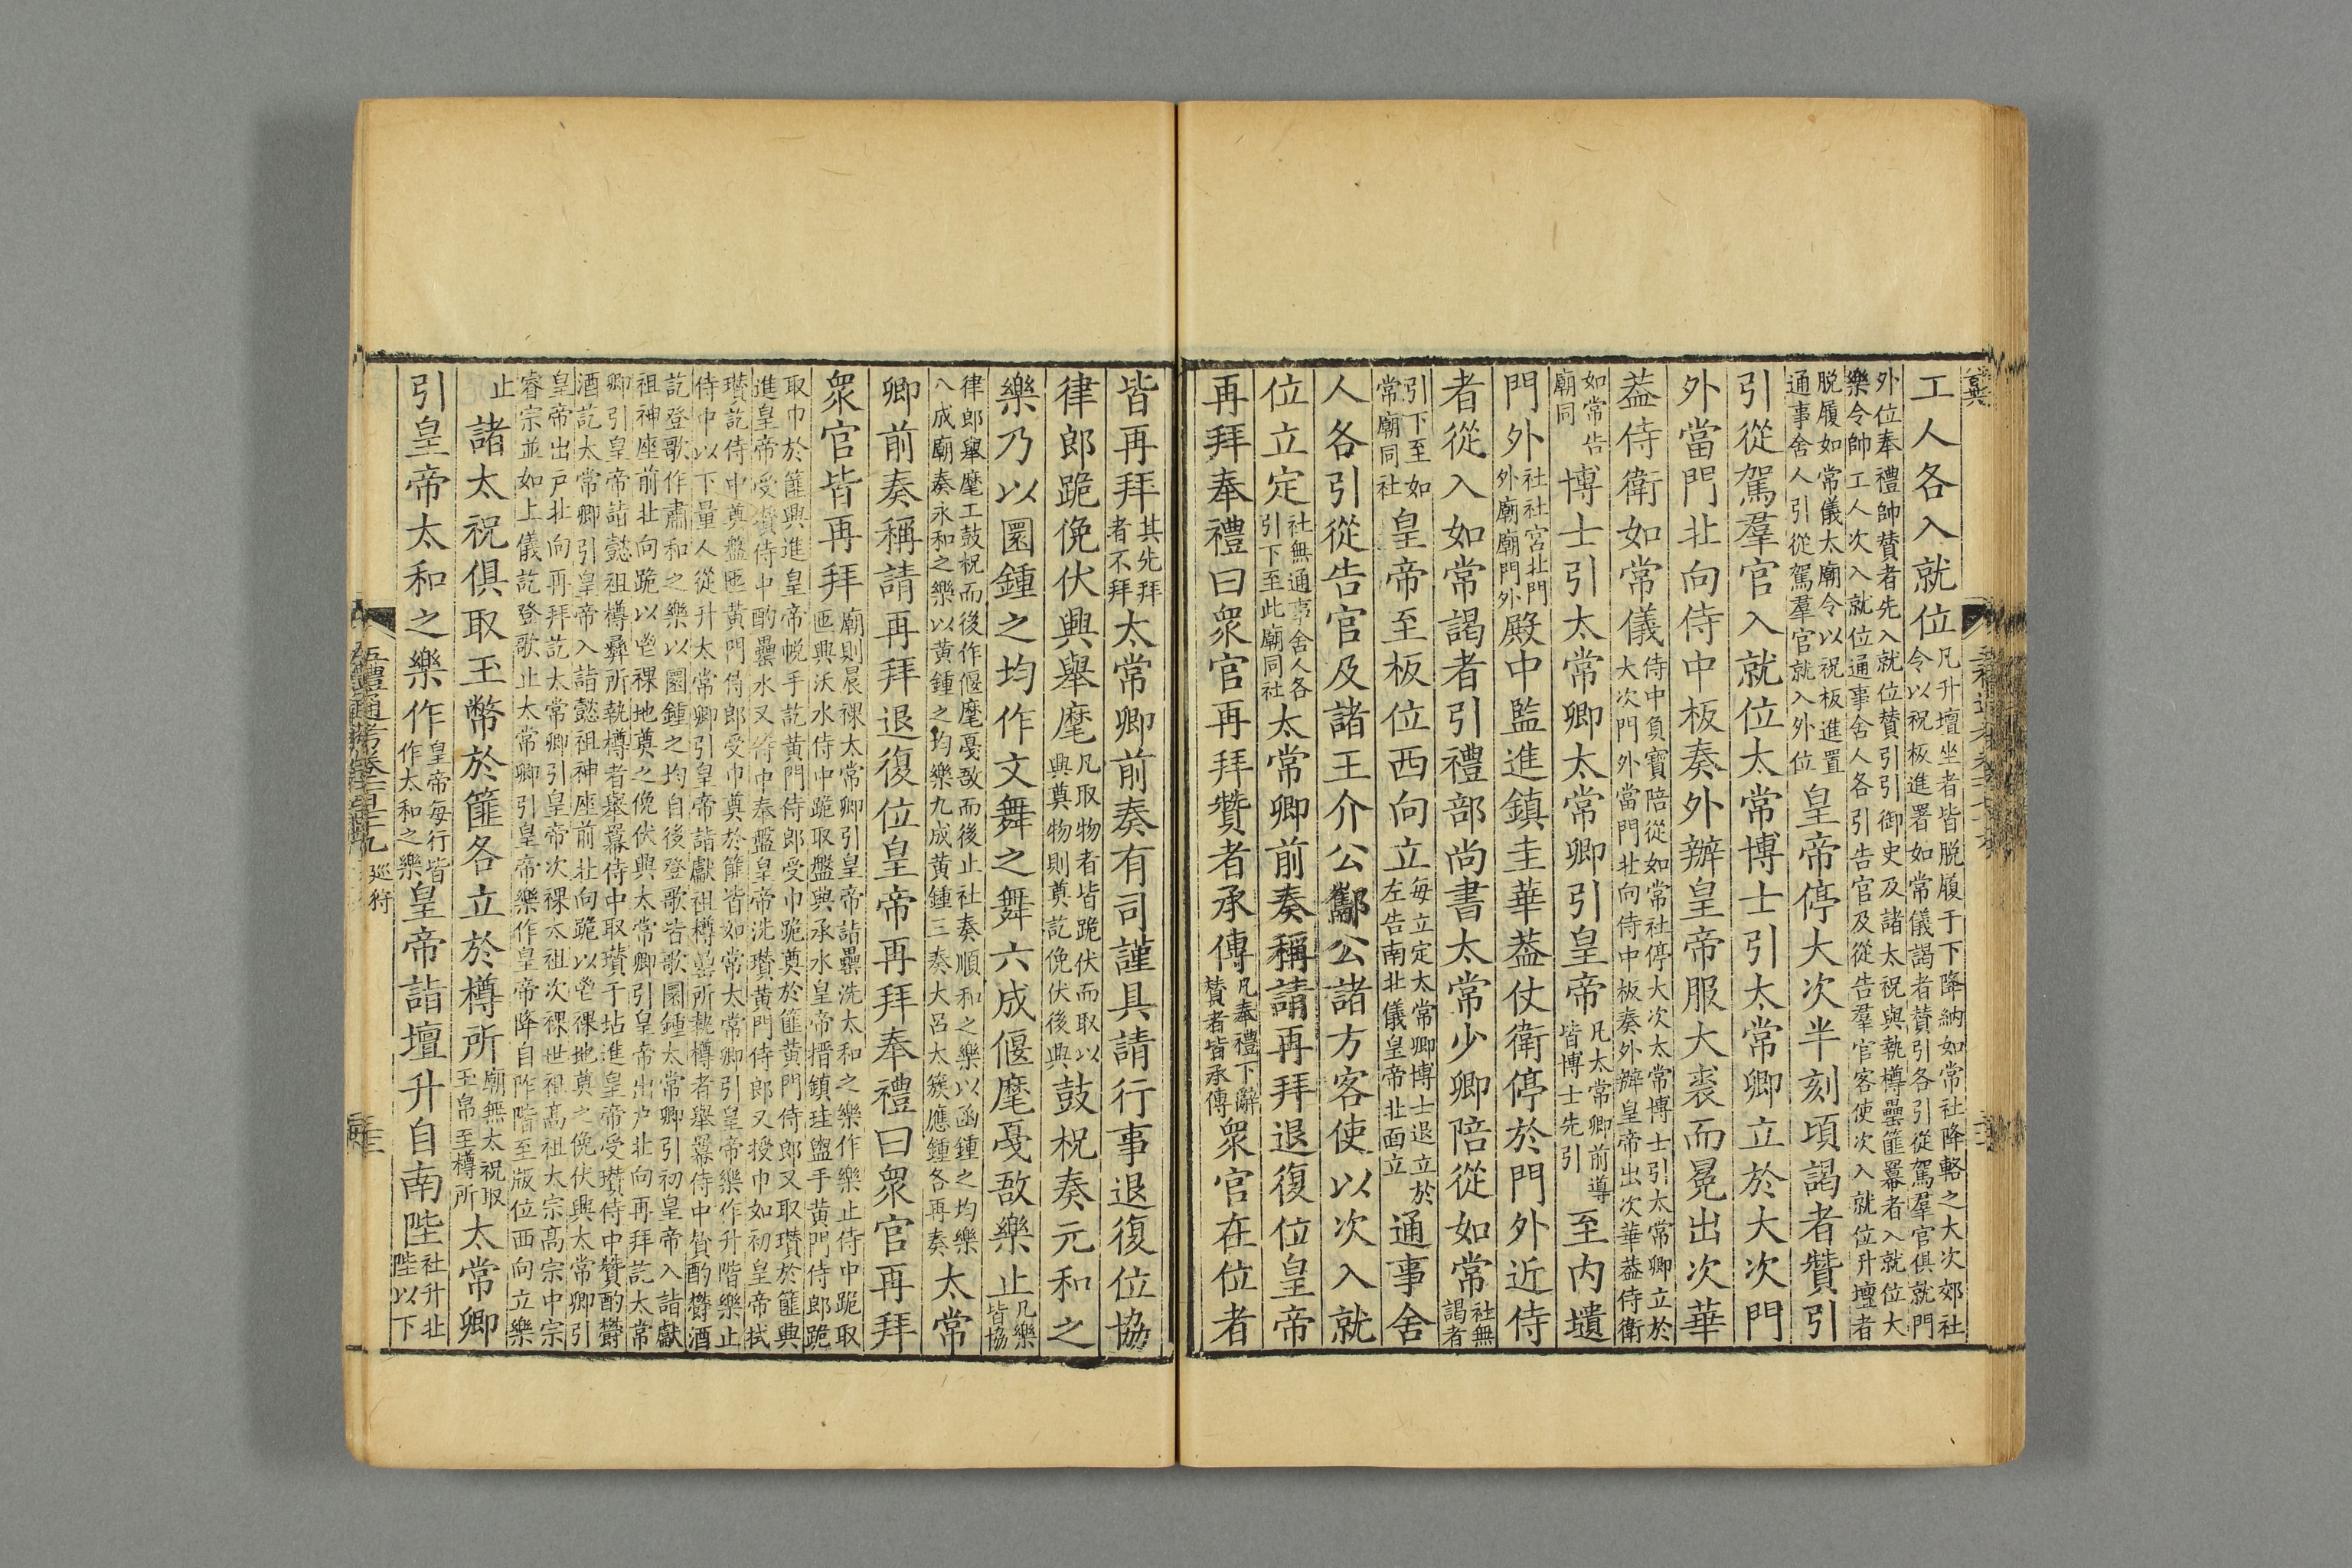 工人各入就位凡升壇坐者皆脫履于下降納如常社降輅之大次郊社令以祝板進署如常儀謁者贊引各引從駕羣官俱就門
外位奉禮帥贊者先入就位贊引引御史及諸太祝與執樽罍篚羃者入就位大樂令帥工人次入就位通事舍人各引告官及從告羣官客使次入就位升壇者
脫履如常儀太廟令以祝板進置通事舍人引從駕羣官就入外位皇帝停大次半刻頃謁者贊引
引從駕羣官入就位太常博士引太常卿立於大次門
外當門北向侍中板奏外辦皇帝服大裘而冕出次華
葢侍衛如常儀侍中負寶陪從如常社停大次太常博士引太常卿立於大次門外當門北向侍中板奏外辦皇帝出次華葢侍衛
如常告廟同博士引太常卿太常卿引皇帝凡太常卿前導皆博士先引至内壝
門外社社宮北門外廟廟門外殿中監進鎮圭華葢仗衛停於門外近侍
者從入如常謁者引禮部尚書太常少卿陪從如常社無謁者
引下至如常廟同社皇帝至板位西向立每立定太常卿博士退立於左告南北儀皇帝北面立通事舍
人各引從告官及諸王介公酅公諸方客使以次入就
位立定社無通事舍人各引下至此廟同社太常卿前奏稱請再拜退復位皇帝
再拜奉禮曰衆官再拜贊者承傳凡奉禮下辭贊者皆承傳衆官在位者
皆再拜其先拜者不拜太常卿前奏有司謹具請行事退復位協
律郎跪俛伏興舉麾凡取物者皆跪伏而取以興奠物則奠訖俛伏後興鼓柷奏元和之
樂乃以圜鍾之均作文舞之舞六成偃麾戛敔樂止凡樂皆協
律郎舉麾工鼓柷而後作偃麾戛敔而後止社奏順和之樂以函鍾之均樂八成廟奏永和之樂以黃鍾之均樂九成黃鍾三奏大呂大簇應鍾各再奏太常
卿前奏稱請再拜退復位皇帝再拜奉禮曰衆官再拜
衆官皆再拜廟則晨祼太常卿引皇帝詣罍洗太和之樂作樂止侍中跪取匜興沃水侍中跪取盤興承水皇帝搢鎮珪盥手黃門侍郎跪
取巾於篚興進皇帝帨手訖黃門侍郎受巾跪奠於篚黃門侍郎又取瓚於篚興進皇帝受瓚侍中酌罍水又侍中奉盤皇帝洗瓚黃門侍郎又授巾如初皇帝拭
瓚訖侍中奠盤匜黃門侍郎受巾奠於篚皆如常太常卿引皇帝樂作升階樂止侍中以下量人從升太常卿引皇帝詣獻祖樽彞所執樽者舉羃侍中贊酌欝酒
訖登歌作肅和之樂以圜鍾之均自後登歌皆歌圜鍾太常卿引初皇帝入詣獻祖神座前北向跪以鬯祼地奠之俛伏興太常卿引皇帝出户北向再拜訖太常
卿引皇帝詣懿祖樽彞所執樽者舉羃侍中取瓚于坫進皇帝受瓚侍中贊酌欝酒訖太常卿引皇帝入詣懿祖神座前北向跪以鬯祼地奠之俛伏興太常卿引
皇帝出户北向再拜訖太常卿引皇帝次祼太祖次祼世祖髙祖太宗髙宗中宗睿宗並如上儀訖登歌止太常卿引皇帝樂作皇帝降自阼階至版位西向立樂
止諸太祝俱取玉幣於篚各立於樽所廟無太祝取玉帛至樽所太常卿
引皇帝太和之樂作皇帝每行皆作太和之樂皇帝詣壇升自南陛社升北陛以下
五禮通考卷一百七十九 廵狩